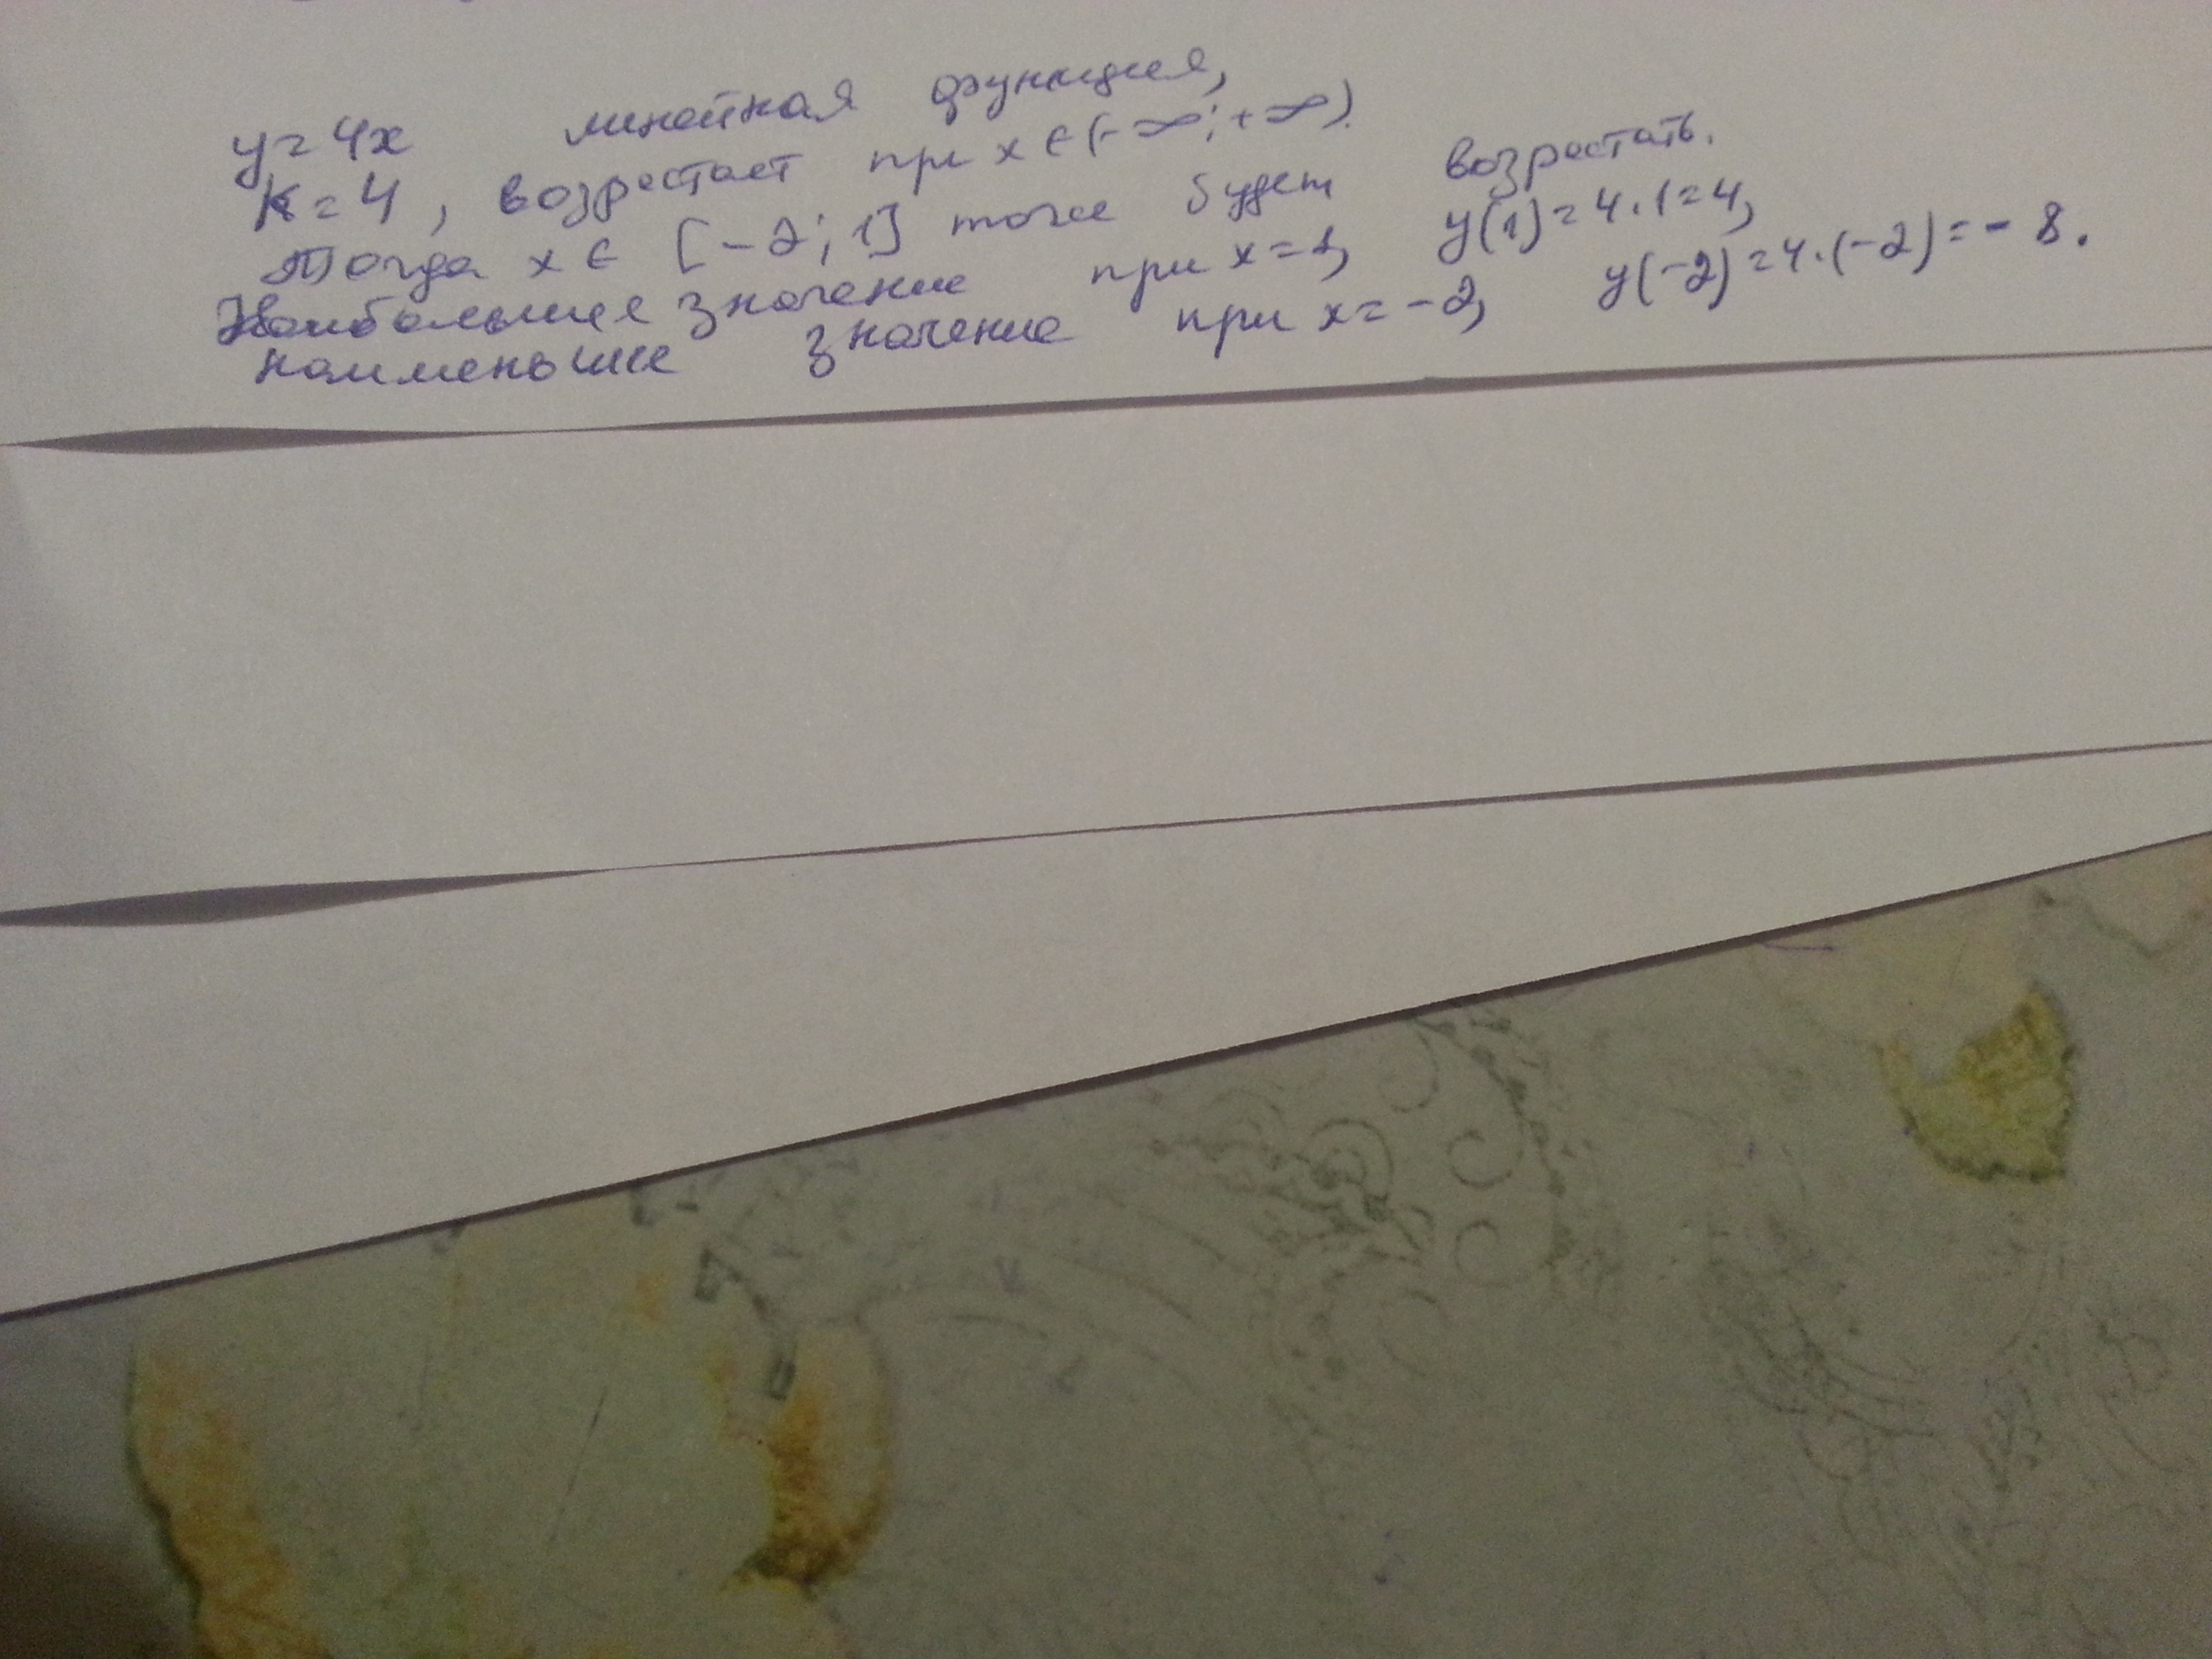 y=4x линейная функция,
k=4, возрастает при x∈(-∞;+∞).
Тогда x∈[-2;1] тоже будет возрастать.
Наибольшее значение при x=1, y(1)=4·1=4,
наименьшее значение при x=-2, y(-2)=4·(-2)=-8.